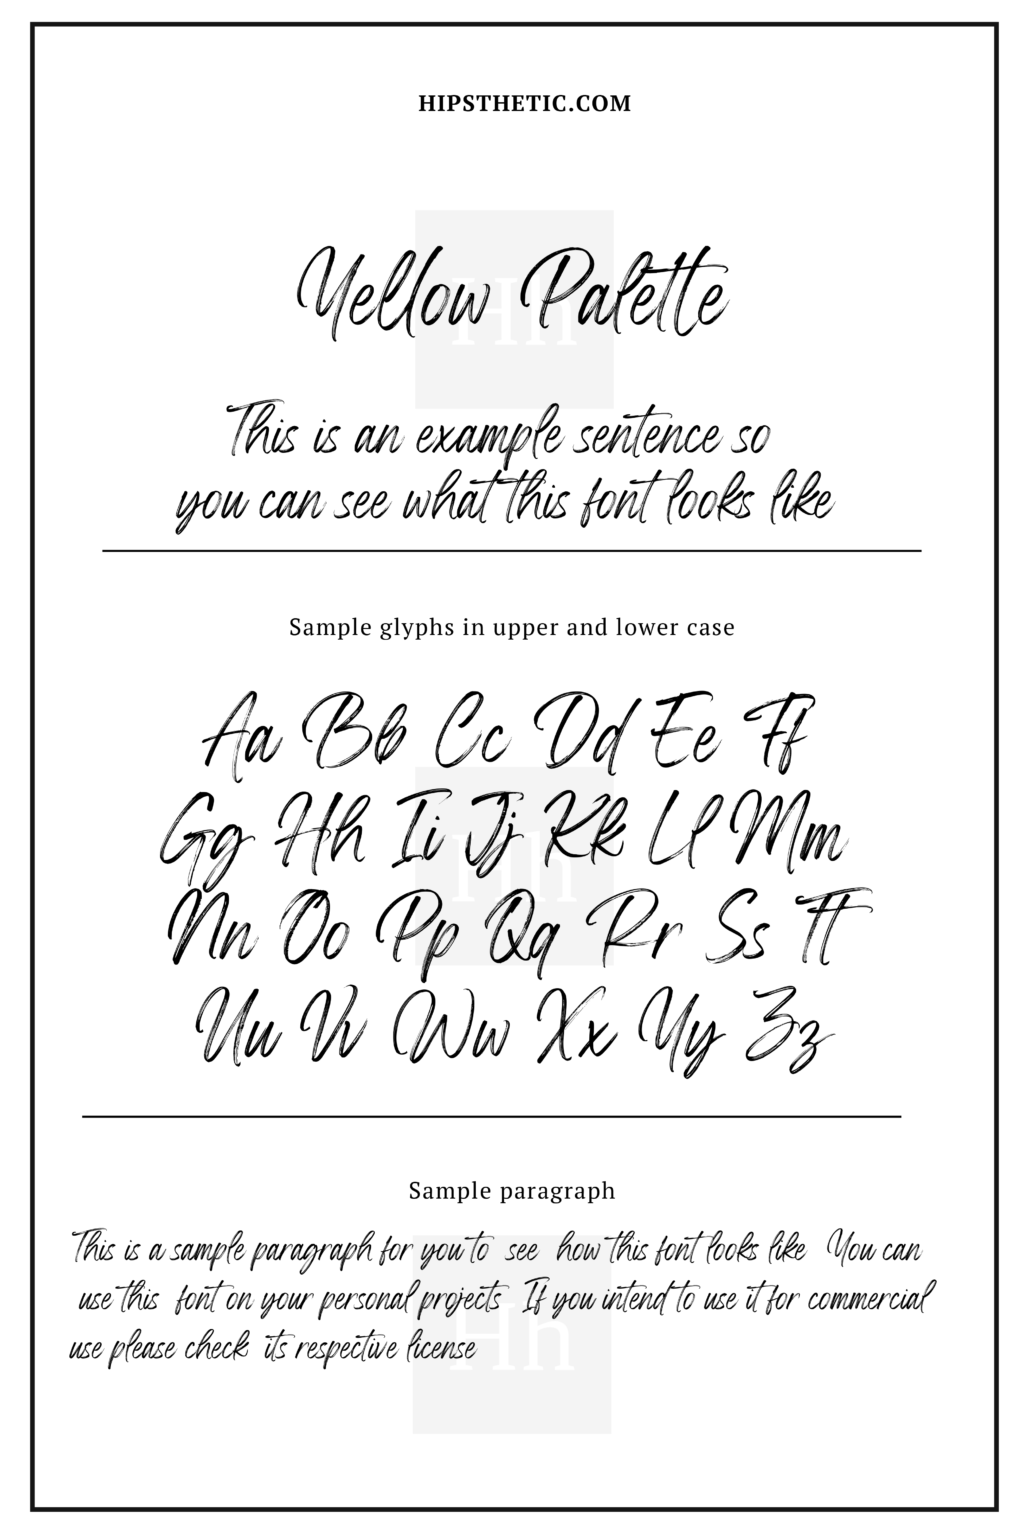 HIPSTHETIC.COM
Yellow Palette
This is an example sentence so
you can see what this font looks like
Sample glyphs in upper and lower case
Aa Bb Cc Dd Ee Ff
Gg Hh Ii Jj Kk Ll Mm
Nn Oo Pp Qq Rr Ss Tt
Uu Vv Ww Xx Yy Zz
Sample paragraph
This is a sample paragraph for you to see how this font looks like You can
use this font on your personal projects If you intend to use it for commercial
use please check its respective license
Hh
Hh
Hh